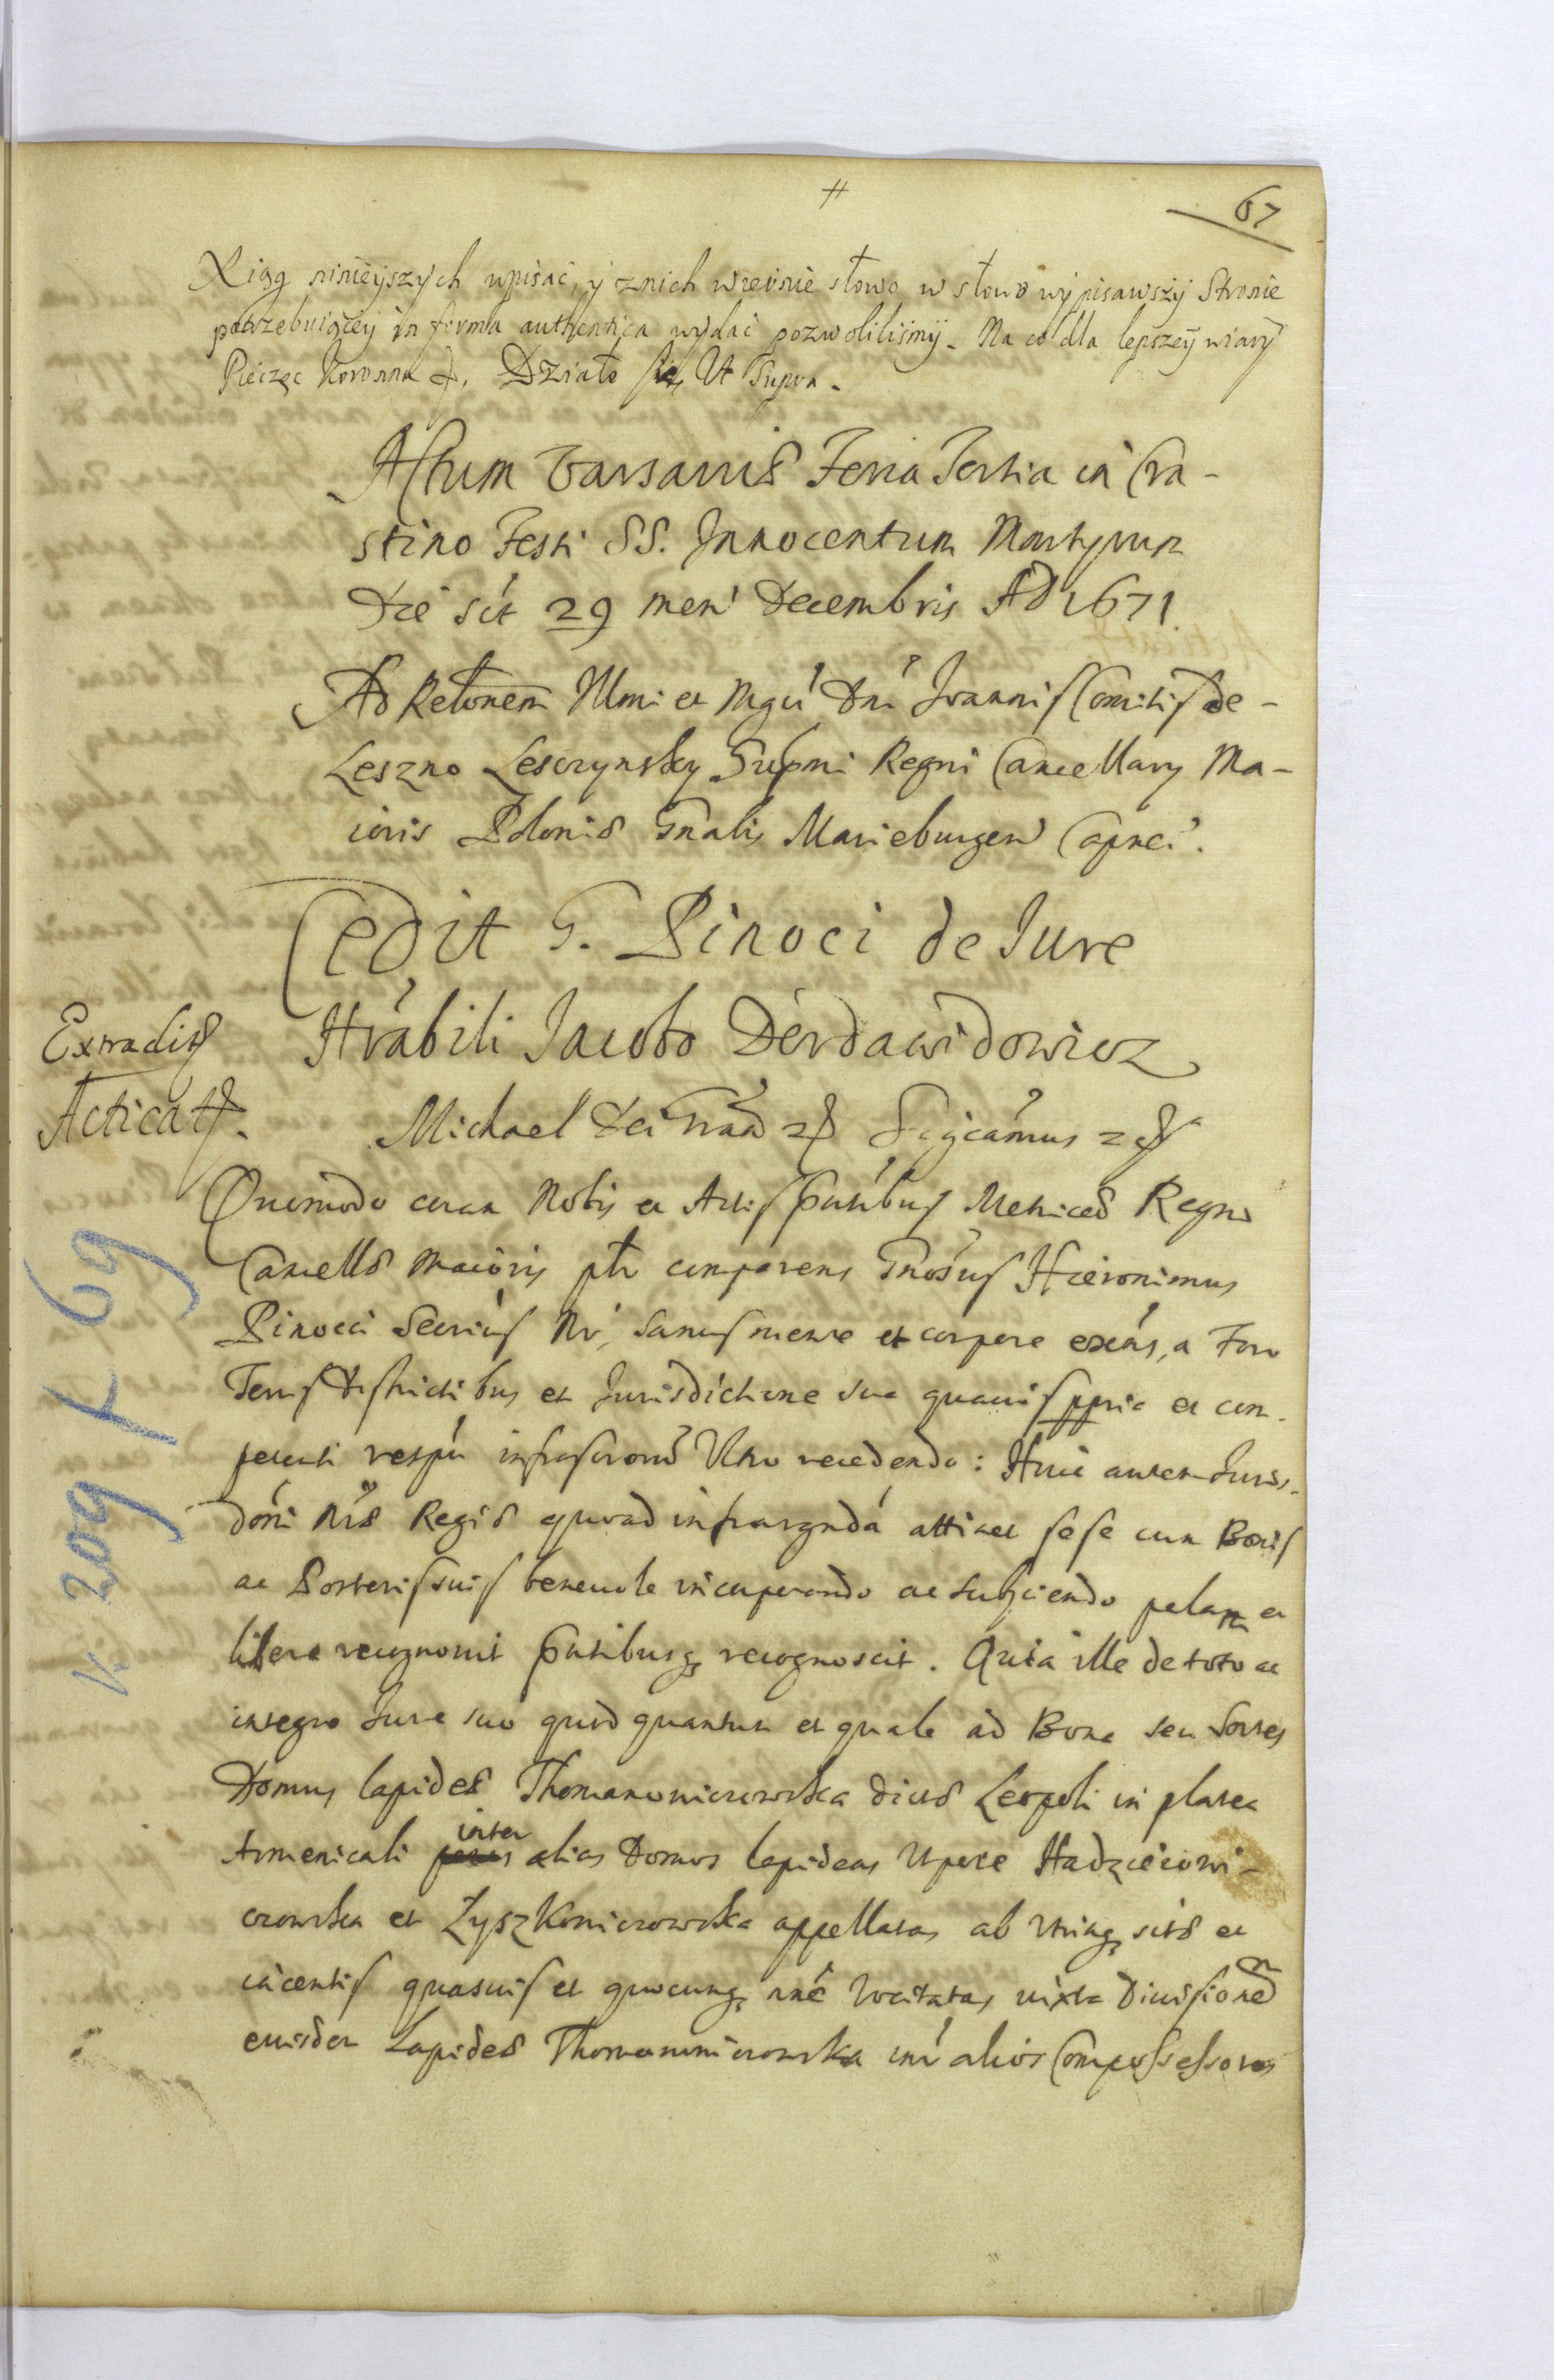 67
Xiąg ninieyszych wpisać, y znich wiernie słowo w słowo wypisawszy Stronie
potrzebuiącey in forma authentica wydać pozwoliliśmy. Na co dla lepszey wiary
Pieczęc Koronna &. Działo się Ut Supra.
Actum Varsaviæ Feria Tertia in Cra-
stino Festi SS. Innocentum Martyrum
Die sct 29 men' Decembris AD 1671.
Ad Relonem Illmi et Mgci Dni Joannis Comitis de-
Leszno Lesczynsky Supmi Regni Cancellary Ma-
ioris Poloniæ Gnalis Marieburgen Capnei.
Cedit G. Pinoci de Jure
Hrabili Jacobo Derdawidowicz
Extradit
Acticat.
Michael Dei Grãa & Sigcamus &
Quomodo coram Nobis et Actis pntibus Metricæ Regni
Cancellæ Maioris pltr comparens Gnosus Hieronimus
Pinocci Secrius Nr, sanus mente et corpore exens, a Foro
Terris Districtibus et Jurisdictione sua quauis ppria et com-
petenti respu infrascrorum Vltro recedendo: Huic autem Juris-
doni Nræ Regiæ quoad infrasrgnda attinet sese cum Bonis
ac Posteris suis beneuole incorporando ac subyciendo palam et
libere recognouit pntibusq recognoscit. Quia ille de toto ac
integro Jure suo quod quantum et quale ad Bona seu Sortes
Domus lapideæ Thomanowiczowska dictæ Leopoli in platea
Armenicali inter alias Domos lapideas Utpote Hadzieiowi-
czowska et Zyszkowiczowska appellatas ab Vtrinq sitæ et
iacentis quasuis et quocunq nne Vocitatas iuxta Diuisione
eiusdem Lapideæ Thomanowiczowska int alios Compossessores
V. 209 f. 69